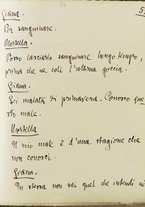 5
Giana.
Per sanguinare.
Mortella.
Posso lasciarlo sanguinare lungo tempo,
prima che ne coli l'ultima goccia.
Giana.
Sei malata di primavera. Conosco
male.
Mortella
Il mio male è d'una stagione che
non conosci
Giana.
In ritorna non sei quel che intendi